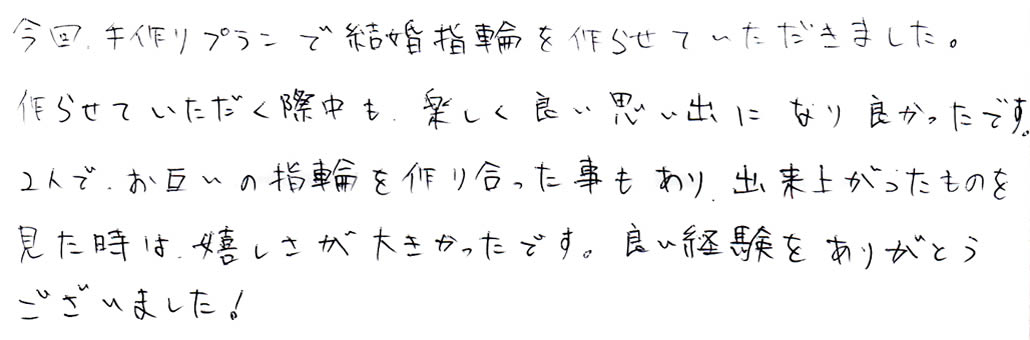 今回、手作りプランで結婚指輪を作らせていただきました。
作らせていただく際中も、楽しく良い思い出になり良かったです。
2人で、お互いの指輪を作り合った事もあり、出来上がったものを
見た時は、嬉しさが大きかったです。良い経験をありがとう
ございました!